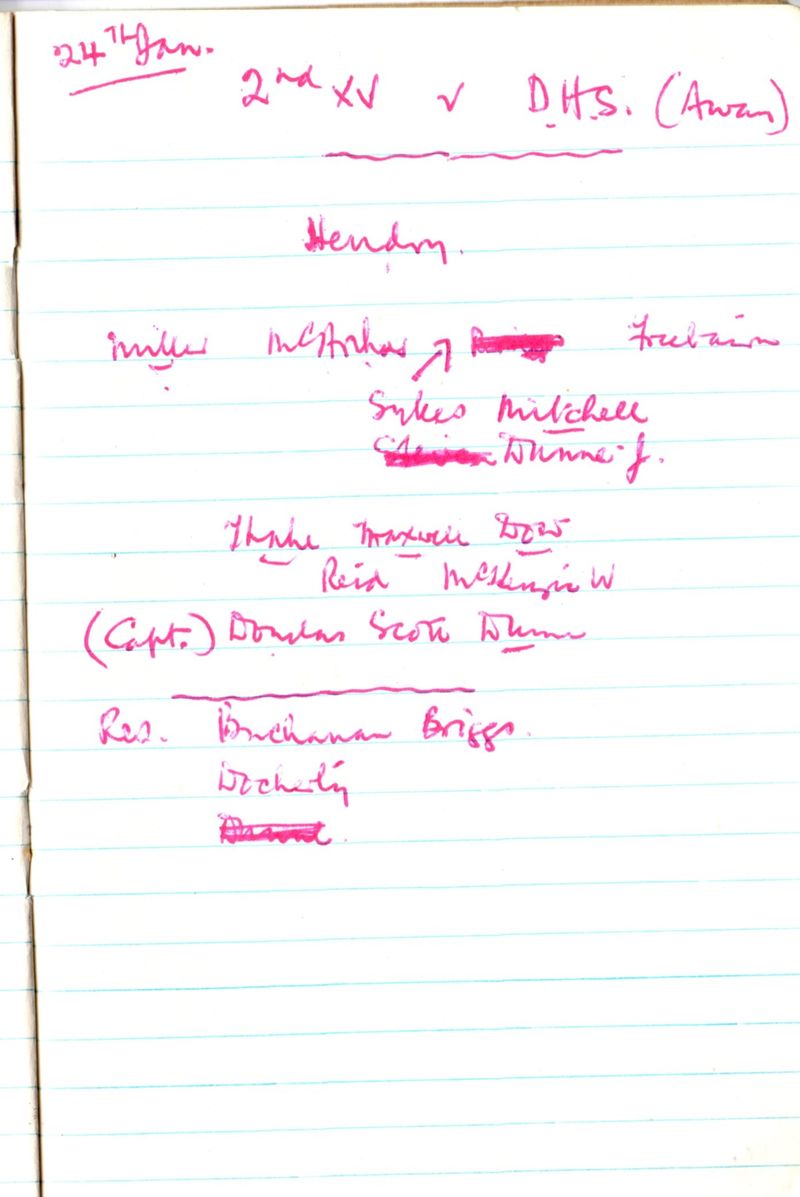 24TH Jan.
2nd XV v D.H.S. (Away)
Hendry.
Miller McArthur Freebairn
Sykes Mitchell
Dunne J.
Thake Maxwell Dow
Reid McKenzie W
(Capt.) Douglas Scott Dunn
Res. Buchanan Briggs.
Docherty